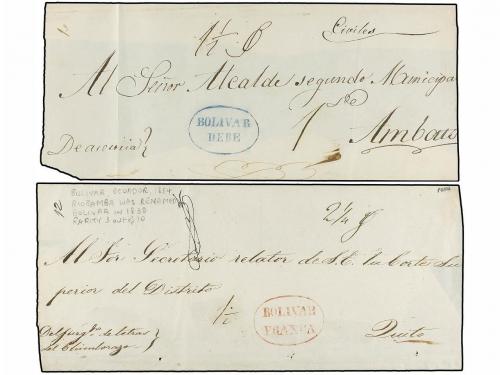 1½
Civiles
Al Señor Alcalde segundo Municipa
BOLIVAR
DEBE
1
Ambato
De
BOLIVAR, ECUADOR, 1854
RIOBAMBA WAS RENAMED
BOLIVAR IN 1838
RARITY 3 OUT OF 10
12
2¼
Al Sor Secretario relator de S.E. la Corte Su
perior del Distrito
½
BOLIVAR
FRANCA
Quito
Del Juzgdo de letras
del Chimborazo